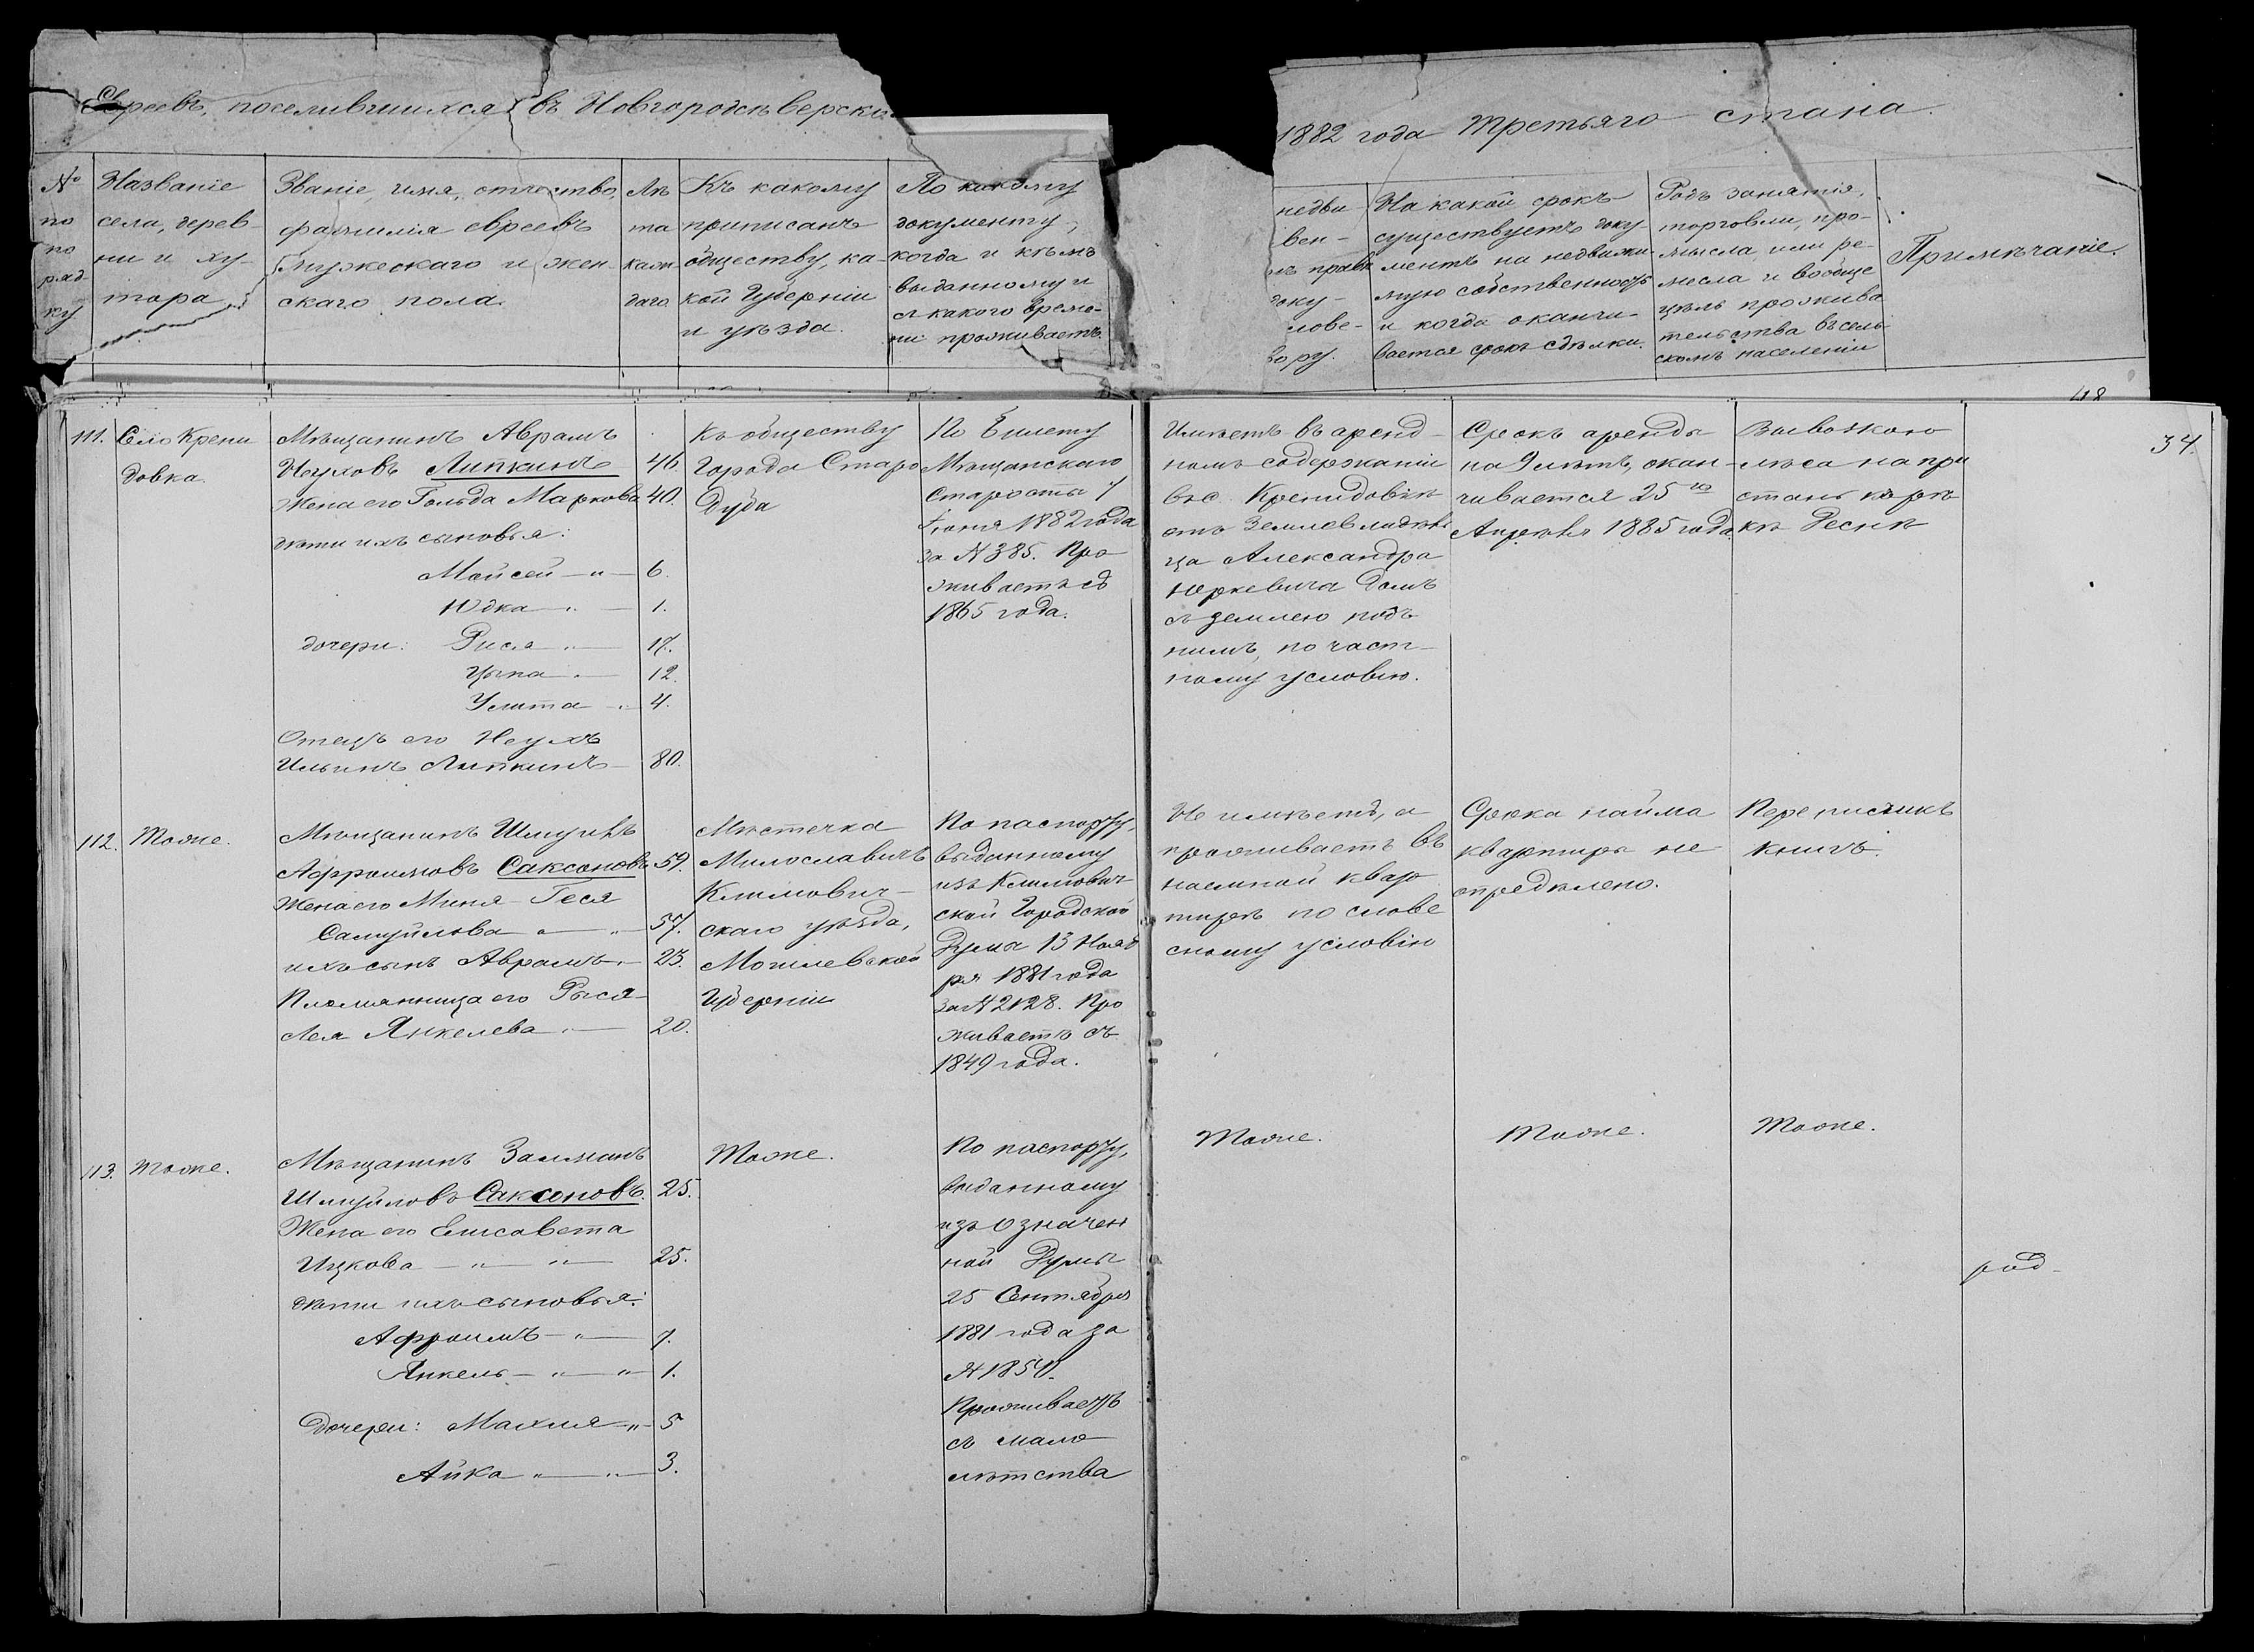 Евреевъ, поселившихся въ Новгородсѣверск
1882 года третьяго стана.
№ по по ряд- ку
Названіе
села, дерев-
ни и ху-
тора
Званіе, имя, отчество,
фамилія евреевъ
мужескаго и жен-
скаго пола.
Лѣ
та
кажд-
даго.
Къ какому
приписанъ
обществу, ка-
кой Губерніи
и уѣзда.
По какому
документу,
когда и кѣмъ
выданному и
съ какого време-
ни проживаетъ.
недви-
вен-
правѣ
доку-
слове-
вору.
На какой срокъ
существуетъ доку-
ментъ на недвижи
мую собственность
и когда оканчи-
вается срокъ сдѣлки.
Родъ занятія,
торговли, про-
мысла, или ре-
месла и вообще
цѣль прожива
тельства въ сель-
скомъ населеніи
Примѣчаніе.
48
34.
111.
Село Крени
довка.
Мѣщанинъ Аврамъ
Неуховъ Липкинъ 46.
Жена его Гольда Маркова 40.
дѣти ихъ сыновья:
Мойсей — " — 6.
Юдка — " — 1.
дочери: Рися — " — 17.
Цыпа — " — 12.
Улита — " — 4.
Отецъ его Неухъ
Ильинъ Липкинъ — 80.
Къ обществу
Города Старо
Дуба
По билету
Мѣщанскаго
Старосты 7
Іюня 1882 года
за № 385. Про
живаетъ съ
1865 года.
Имѣетъ въ аренд-
номъ содержаніи
въ с. Кренидовкѣ
отъ Землевладѣль
ца Александра
Юркевича домъ
съ землею подъ
нимъ, по част-
ному условію.
Срокъ аренды
на 9 лѣтъ, окан-
чивается 25го
Апрѣля 1885 года.
Вывозкою
лѣса на при
стань къ рѣ
кѣ Деснѣ
112.
Тоже.
Мѣщанинъ Шмуилъ
Афроимовъ Саксоновъ 59.
Жена его Миня-Геся
Самуйлова — " — 57.
ихъ сынъ Аврамъ — 23.
Племянница его Рыся-
Лея Янкелева — " — 20.
Мѣстечка
Милославичъ
Климович-
скаго уѣзда,
Могилевской
Губерніи
По паспорту,
выданному
изъ Климович-
ской Городской
Думы 13 Нояб
ря 1881 года
за № 2128. Про
живаетъ съ
1849 года.
Не имѣетъ, а
проживаетъ въ
наемной квар
тирѣ по слове
сному условію
Срока найма
квартиры не
опредѣлено.
Переписчикъ
книгъ.
113.
Тоже.
Мѣщанинъ Залманъ
Шмуйловъ Саксоновъ. 25.
Жена его Елисавета
Ицкова — " — " — 25.
дѣти ихъ сыновья:
Афроимъ — " — 7.
Янкель — " — " — 1.
Дочери: Махля — " — 5
Айка — " — " — 3.
Тоже.
По паспорту,
выданному
изъ означен
ной Думы
25 Сентября
1881 года за
№ 1850.
Проживаетъ
съ мало
лѣтства
Тоже.
Тоже.
Тоже.